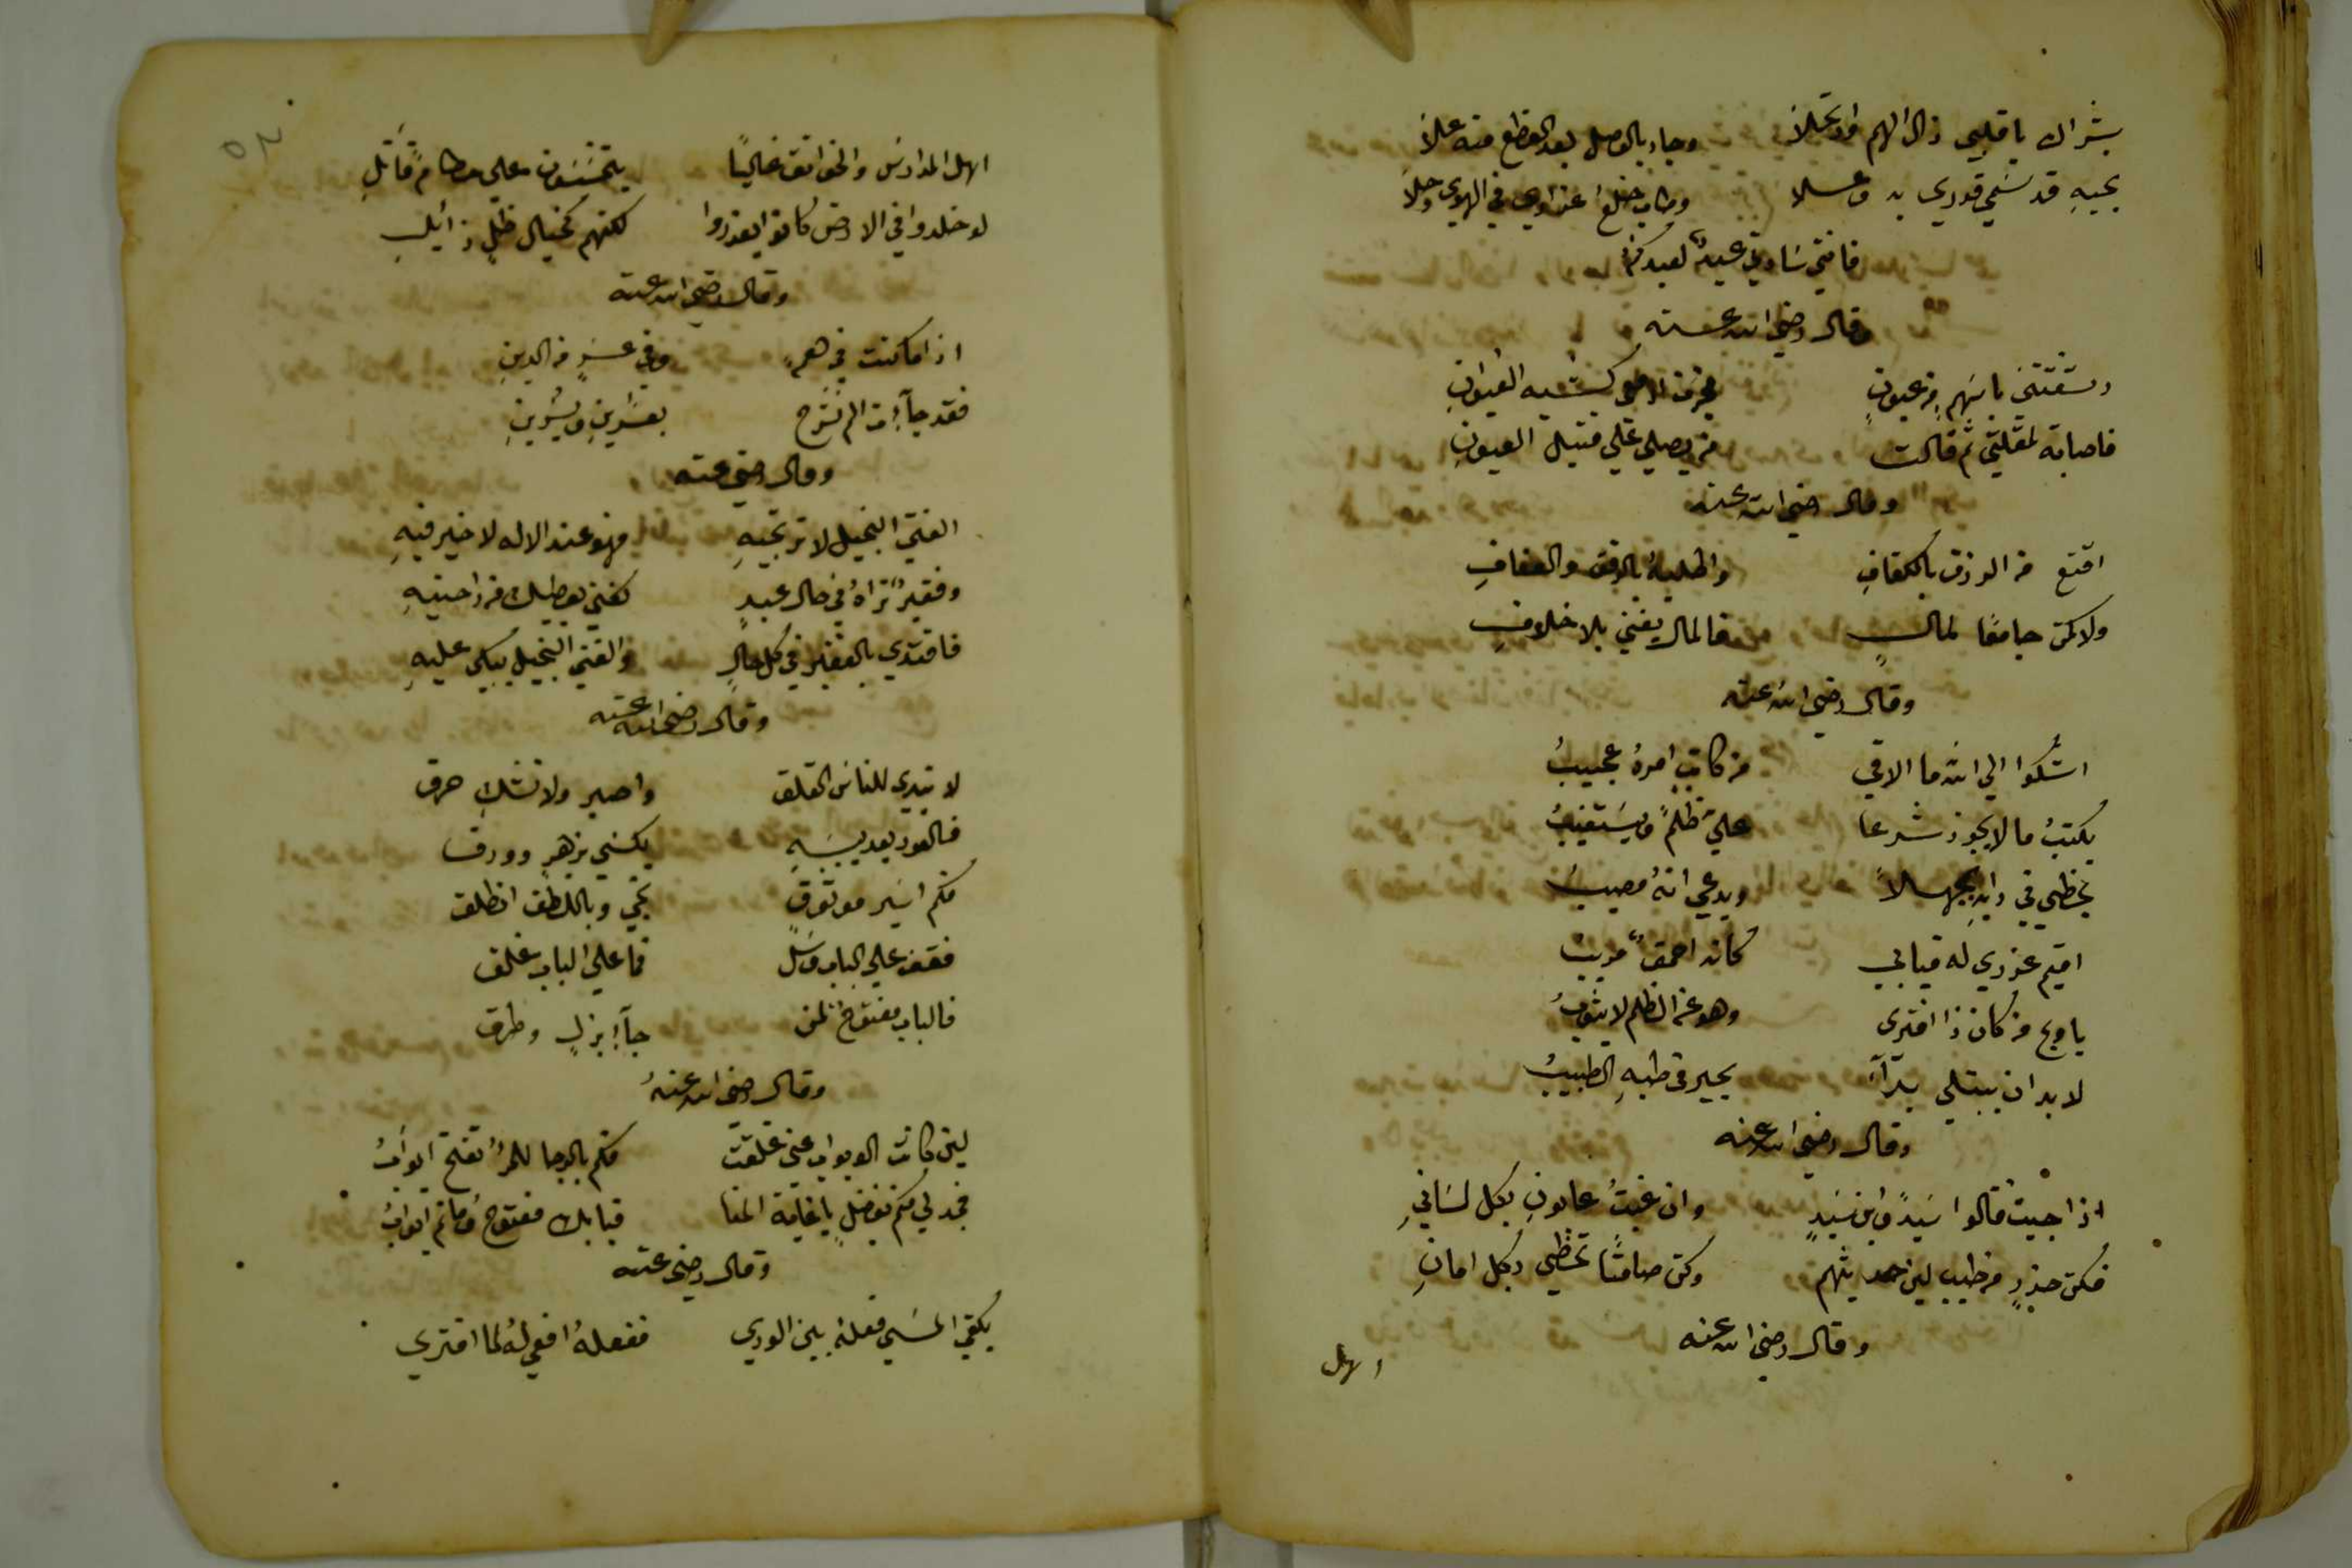 بشراك يا قلبي زال الهم وانجلا وجاد بالوصل بعد القطع منه علا
بحبهِ قد سمي قدري به وعلا وطاب خلع عذاري في الهوى وحلا
فانني ساوتي عبدٌ لعبدكم
وقال رضي الله عنه
رشقتني باسهمٍ من عيونٍ
فاصابة لمقلتي ثم قالت من يصلي علي قتيل العيونِ
وقال رضي الله عنه
اقنع من الرزق بالكفافِ واطلبهُ بالرفق والعفافِ
ولا تكن جامعًا لمالٍ فالمال يفني بلا خلافِ
وقال رضي الله عنه
اشكوا الي الله ما الاقي من كاتبٍ امرهُ عجيبُ
يكتبُ ما لا يجوز شرعا عليّ ظلمً ويستغيبُ
يخطي في رايهِ بجهلاً ويدعي انهُ مصيبُ
اقيم عذري له فيابي كانه احمقٌ مريبُ
يا ويح من كان ذا افترى وهو عن الظلم لا يتوبُ
لا بد ان يبتلي بدآء يحير في طبهِ الطبيبُ
وقال رضي الله عنه
اذا جيت قالوا سيدً وابن سيدٍ وان غبتُ عابونِ بكل لسانِ
فكن حذرٍ من طيب لين حديثهم وكن صامتًا تحظي بكل امانِ
وقال رضي الله عنه
اهل
اهل المدارس والخوانق غالبًا يتمشون علي حطامٍ قاتلِ
لو خلدوا في الارض كانوا يعذروا لكنهم كخيال ظلٍ زائلِ
وقال رضي الله عنه
اذا ما كنت في همٍ وفي عسرٍ من الدينِ
فقد جآء في الم نشرح بعسرينِ ويسرينِ
وقال رضي عنه
الغني البخيل لا ترتجيهِ فهو عند الاله لا خير فيهِ
وفقيرٌ تراهُ في حال عبدٍ كفني يعطيك من راحتيهِ
فاقتدي بالفقير في كل حالٍ والغني البخيل يبكي عليهِ
وقال رضي الله عنه
لا تبدي للناس القلق واصبر ولا تشكِ حرق
فالعود بعد يبسهِ يكسي بزهرٍ وورق
فكم اسيرٍ موثوقٍ نجي وباللطف انطلق
فقف علي الباب وسل فما علي الباب غلق
فالباب مفتوحٌ لمن جآء بذلٍ وطرق
وقال رضي الله عنهُ
لين كانت الابواب عني غلقت فكم بالرجا للمرء تفتح ابوابُ
فجد لي فكم تفضلٍ يا غاية المنا فبابك مفتوح وما ثم ابوابُ
وقال رضي عنه
يكفي المسي فعلهُ بين الوري ففعلهُ افعي لهُ لما افتري